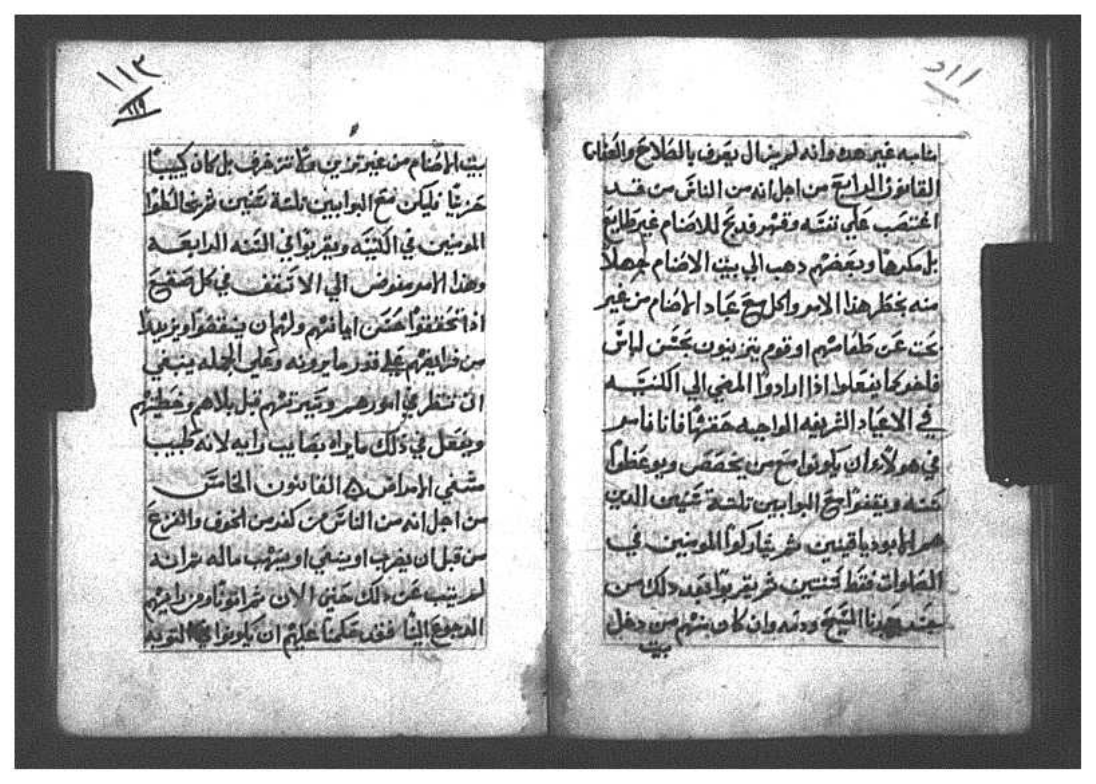 ثانيه غير هده وانه لم يزال يعرف بالصلاح والعفاف
القانون الرابع من اجل انه من الناس من قد
اغتصب علي نفسه وقهر فدبح للاصنام غير طايع
بل مكرها وبعضهم دهب الي بيت الاصنام جهلا
منه بخطر هذا الامر واكل مع عباد الاصنام من غير
بحث عن طعامهم او قوم يتزينون بحسن لباس
فاخر كما يفعلوا اذا ارادوا المضي الي الكنيسه
في الاعياد الشريفه الواجبه حقوقها فانا نامر
في هولاء ان يكونوا مع من يخصص ويوعظوا
سنه ويقفوا مع البوابين تلتة سنين الدين
هم ايبودياقنين ثم يشاركوا المومنين في
الصلوات فقط سنتين ثم يقربوا بعد دلك من
جسد ربنا المسيح ودمه وان كان منهم من دخل
بيت
١١٣
١١٩
بيت الاصنام من غير تزين ولا تزخرف بل كان كييبا
حزينا فليكن مع البوابين تلتة سنين ثم يخالطوا
المومنين في الكنيسه ويقربوا في السنه الرابعه
وهذا الامر مفوض الي الاسقف في كل صقع
اذا تحققوا حسن ايمانهم ولهم ان ينقصوا ويزيدوا
من فرايضهم علي قدر ما يرونه وعلي الجمله ينبغي
ان تنظر في امورهم وسيرتهم قبل بلاهم وخطيتهم
ويفعل في ذلك ما يراه بصايب رايه لانه طبيب
مشفي الامراض القانون الخامس
من اجل انه من الناس من كفر من الخوف والفزع
من قبل ان يضرب او ينفي او ينهب ماله ثم انه
لم يتب عن دلك حتي الان ثم اتونا ومن امرهم
الرجوع الينا فقد حكمنا عليهم ان يكونوا في التوبه